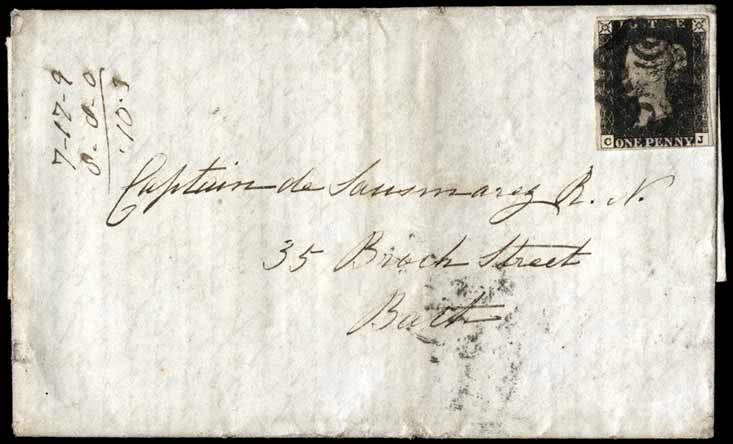 7-17-9
8-0-0
.10.3
POSTAGE
C ONE PENNY J
Captain de Sausmarez R. N.
35 Brock Street
Bath